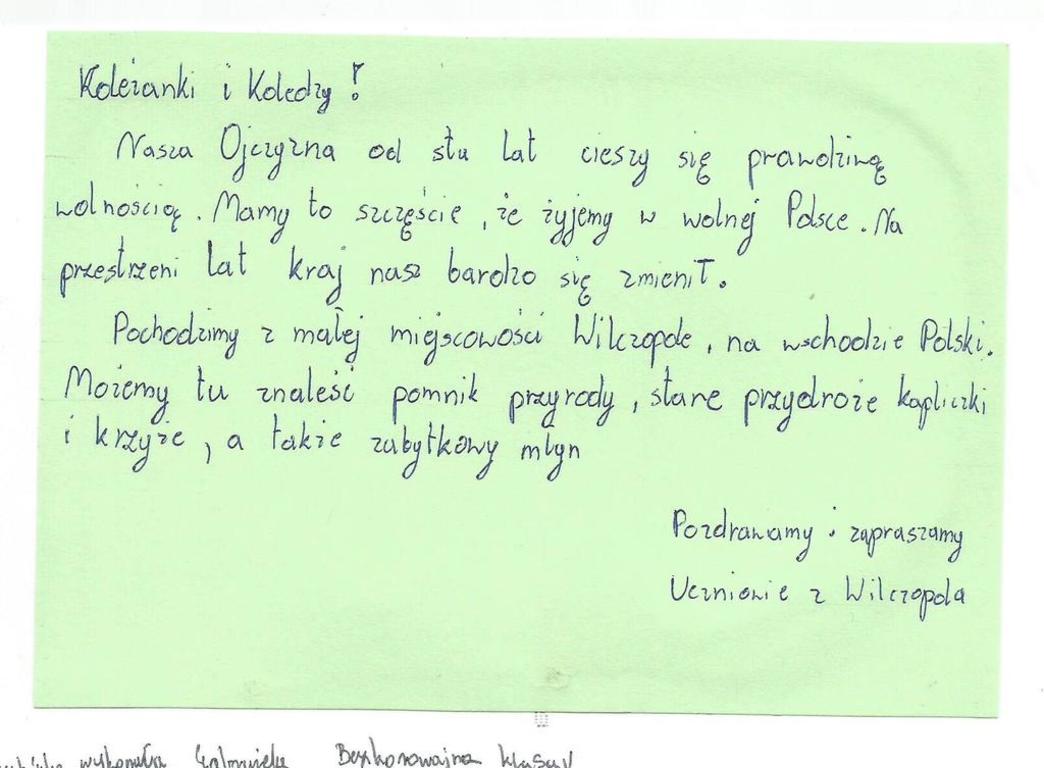 Koleżanki i Koledzy!
Nasza Ojczyzna od stu lat cieszy się prawdziwą
wolnością. Mamy to szczęście, że żyjemy w wolnej Polsce. Na
przestrzeni lat kraj nasz bardzo się zmienił.
Pochodzimy z małej miejscowości Wilczopole, na wschodzie Polski.
Możemy tu znaleść pomnik przyrody, stare przydroże kapliczki
i krzyże, a także zabytkowy młyn
Pozdrawamy i zapraszamy
Uczniowie z Wilczopola
wykonała klasa V